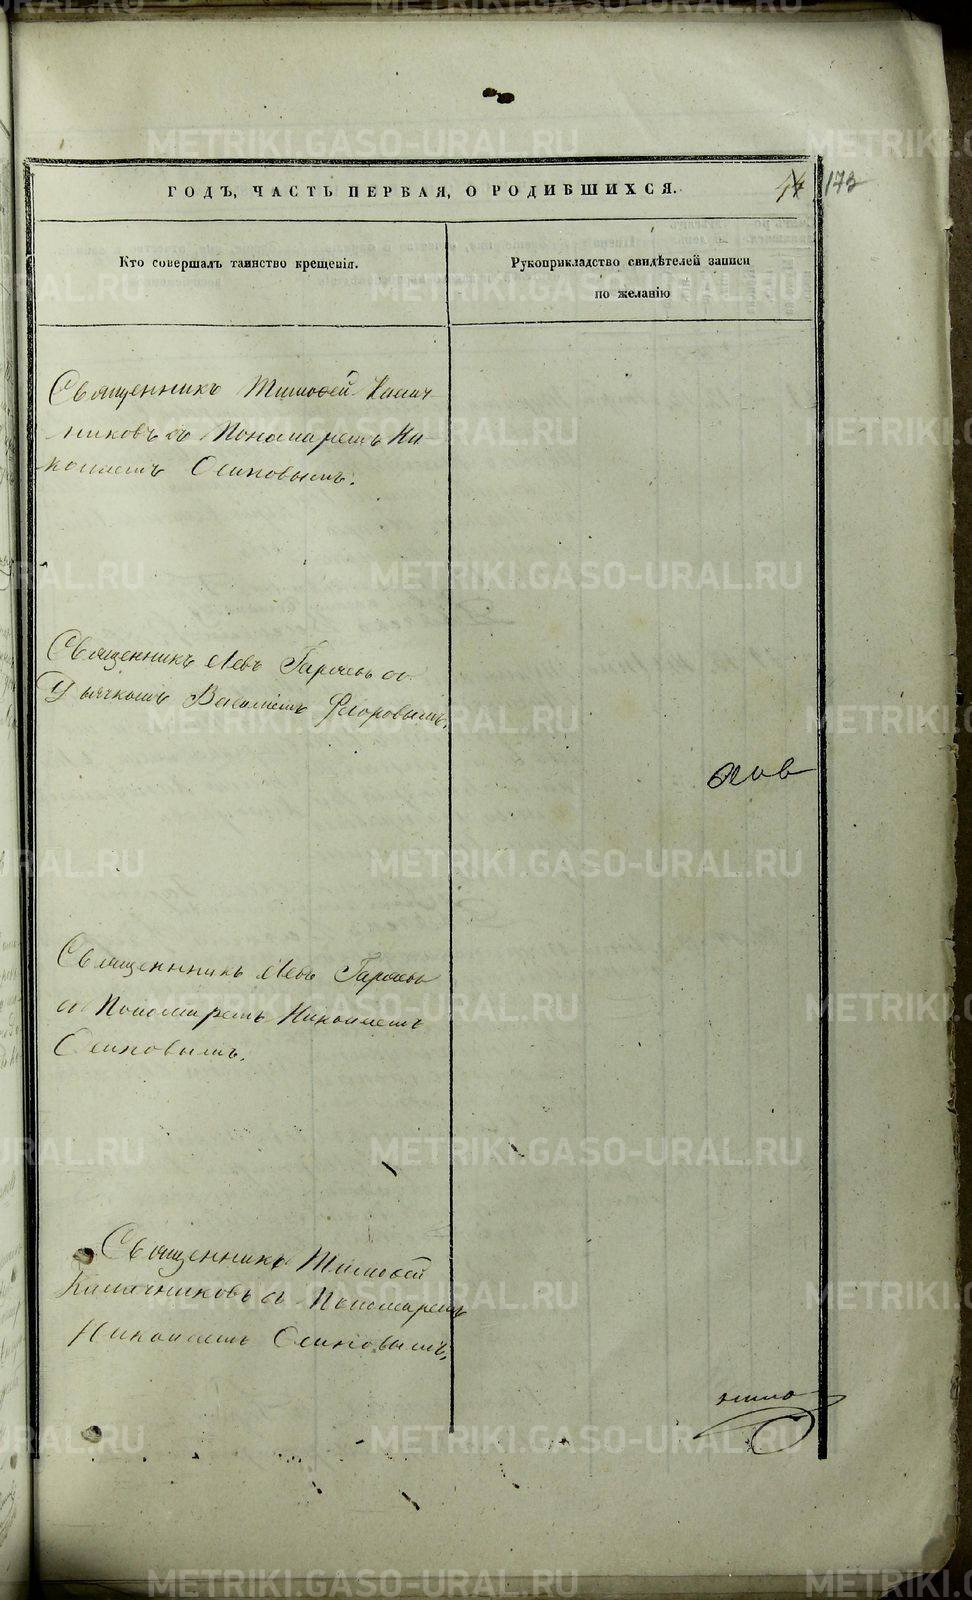 ГОДЪ, ЧАСТЬ ПЕРВАЯ, О РОДИВШИХСЯ.
173
Кто совершалъ таинство крещенія.
Рукоприкладство свидѣтелей записи
по желанію
Священникъ Тимоѳей
никовъ съ Пономаремъ Ни-
Осиповымъ.
Священникъ Левъ Гаряевъ съ
Дьячкомъ Василіемъ Флоровымъ.
Священникъ Левъ Гаряевъ
съ Пономаремъ
Осиповымъ.
Священникъ Тимоѳей
съ Пономаремъ
Осиповымъ.
METRIKI.GASO-URAL.RU